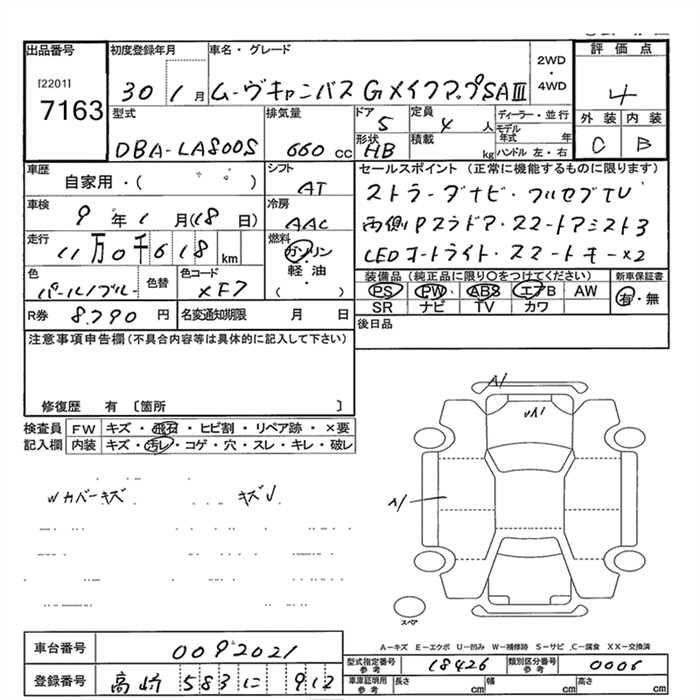 出品番号
[2201]
7163
初度登録年月
30 1 月
車名・グレード
ムーヴキャンバス GメイクアップSAⅢ
2WD
・
4WD
評価点
4
外装 内装
C B
型式
DBA-LA800S
排気量
660 cc
ドア
5
形状
HB
定員
4 人
積載
kg
ディーラー・並行
モデル年式 年
ハンドル 左・右
車歴
自家用・( )
シフト
AT
車検
9 年 1 月(18 日)
冷房
AAC
走行
11万0千618 km
燃料
ガソリン
・
軽油
・
( )
色
パール/ブルー
色替
色コード
XF7
R券 8,790 円
名変通知期限 月 日
セールスポイント (正常に機能するものに限ります)
ストラーダナビ・フルセグTV
両側Pスラドア・スマートアシスト3
LEDオートライト・スマートキー×2
装備品(純正品に限り○をつけてください)
PS PW ABS エアB AW
SR ナビ TV カワ
新車保証書
有・無
後日品
注意事項申告欄(不具合内容等は具体的に記入して下さい)
修復歴 有 〔箇所 〕
検査員記入欄
FW キズ・飛石・ヒビ割・リペア跡・×要
内装 キズ・汚レ・コゲ・穴・スレ・キレ・破レ
Wカバーキズ キズU
A1
A1
スペア
A-キズ E-エクボ U-凹み W-補修跡 S-サビ C-腐食 XX-交換済
車台番号 0092021
登録番号 高崎 583 に 912
型式指定番号 参考 18426
類別区分番号 参考 0006
車庫証明用 参考 長さ cm 幅 cm 高さ cm